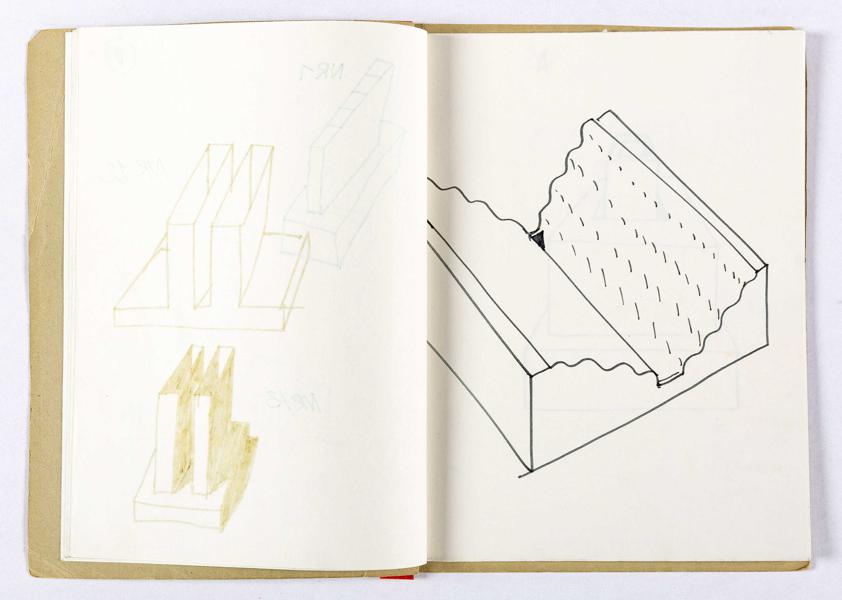 NR1
NR 12
NR13